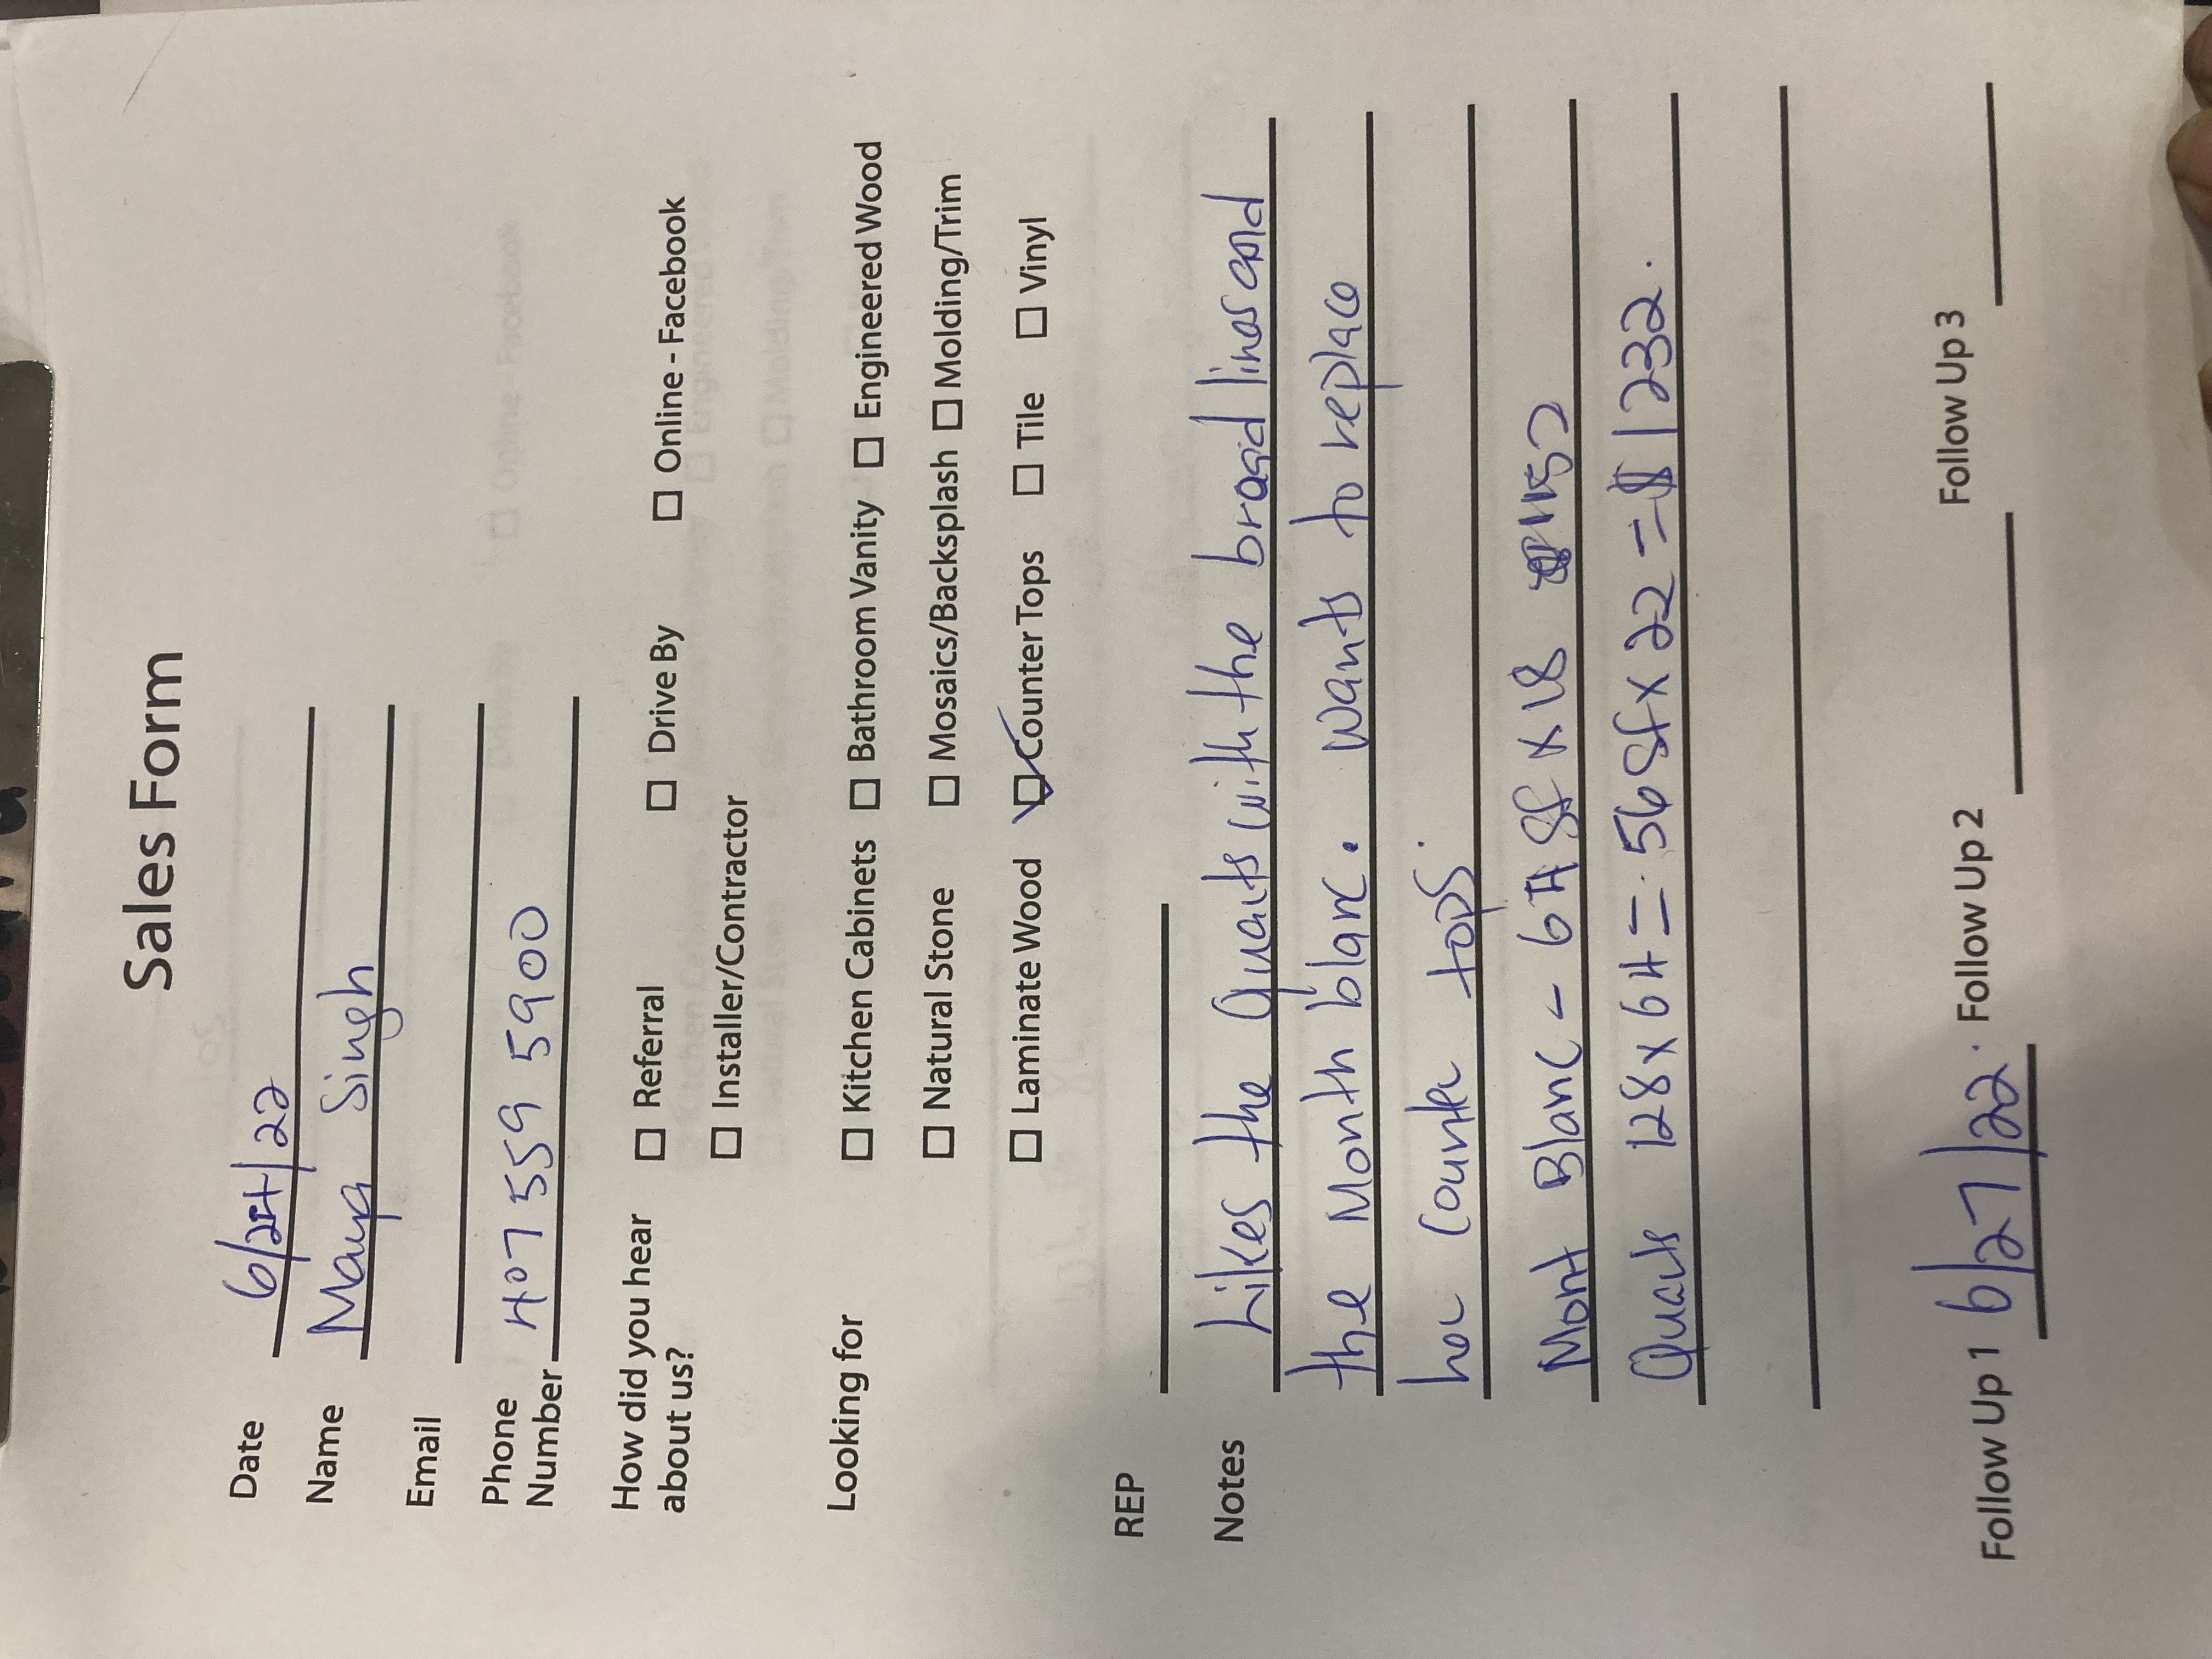 Sales Form
Date 6/24/22
Name Maya Singh
Email
Phone
Number 407 559 5900
How did you hear
about us?
☐ Referral ☐ Drive By ☐ Online - Facebook
☐ Installer/Contractor
Looking for ☐ Kitchen Cabinets ☐ Bathroom Vanity ☐ Engineered Wood
☐ Natural Stone ☐ Mosaics/Backsplash ☐ Molding/Trim
☐ Laminate Wood ☑ Counter Tops ☐ Tile ☐ Vinyl
REP
Notes Likes the Quarts with the broad lines and
the Month blanc. wants to replace
her counter tops.
Mont Blanc - 64 sf x 18 1152
Quarts 128 x 64 = 56 sf x 22 = $1232.
Follow Up 1 6/27/22. Follow Up 2 Follow Up 3